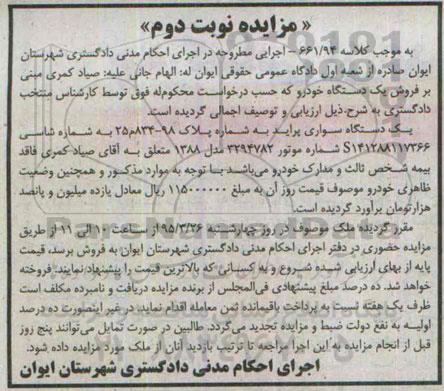 « مزایده نوبت دوم»
به موجب کلاسه ۶۶۱/۹۴ - اجرایی مطروحه در اجرای احکام مدنی دادگستری شهرستان
ایوان صادره از شعبه اول دادگاه عمومی حقوقی ایوان له: الهام جانی علیه: صیاد کمری مبنی
بر فروش یک دستگاه خودرو که حسب درخواست محکوم‌له فوق توسط کارشناس منتخب
دادگستری به شرح ذیل ارزیابی و توصیف اجمالی گردیده است.
یک دستگاه سواری پراید به شماره پلاک ۹۸-۸۳۴م۲۵ به شماره شاسی
S۱۴۱۲۲۸۸۱۱۷۳۶۶ شماره موتور ۳۲۹۴۷۸۲ مدل ۱۳۸۸ متعلق به آقای صیاد کمری فاقد
بیمه شخص ثالث و مدارک خودرو می‌باشد با توجه به موارد مذکور و همچنین وضعیت
ظاهری خودرو موصوف قیمت روز آن به مبلغ ۱۱۵۰۰۰۰۰۰ ریال معادل یازده میلیون و پانصد
هزارتومان برآورد گردیده است.
مقرر گردیده ملک موصوف در روز چهارشنبه ۹۵/۳/۲۶ از ساعت ۱۰ الی ۱۱ از طریق
مزایده حضوری در دفتر اجرای احکام مدنی دادگستری شهرستان ایوان به فروش برسد، قیمت
پایه از بهای ارزیابی شده شروع و به کسانی که بالاترین قیمت را پیشنهاد نمایند فروخته
خواهد شد. ده درصد مبلغ پیشنهادی فی‌المجلس از برنده مزایده دریافت و نامبرده مکلف است
ظرف یک هفته نسبت به پرداخت باقیمانده ثمن معامله اقدام نماید. در غیر اینصورت ده درصد
اولیه به نفع دولت ضبط و مزایده تجدید می‌گردد. طالبین در صورت تمایل می‌توانند پنج روز
قبل از انجام مزایده به این اجرا مراجعه تا ترتیب بازدید آنان از ملک مورد مزایده داده شود.
اجرای احکام مدنی دادگستری شهرستان ایوان